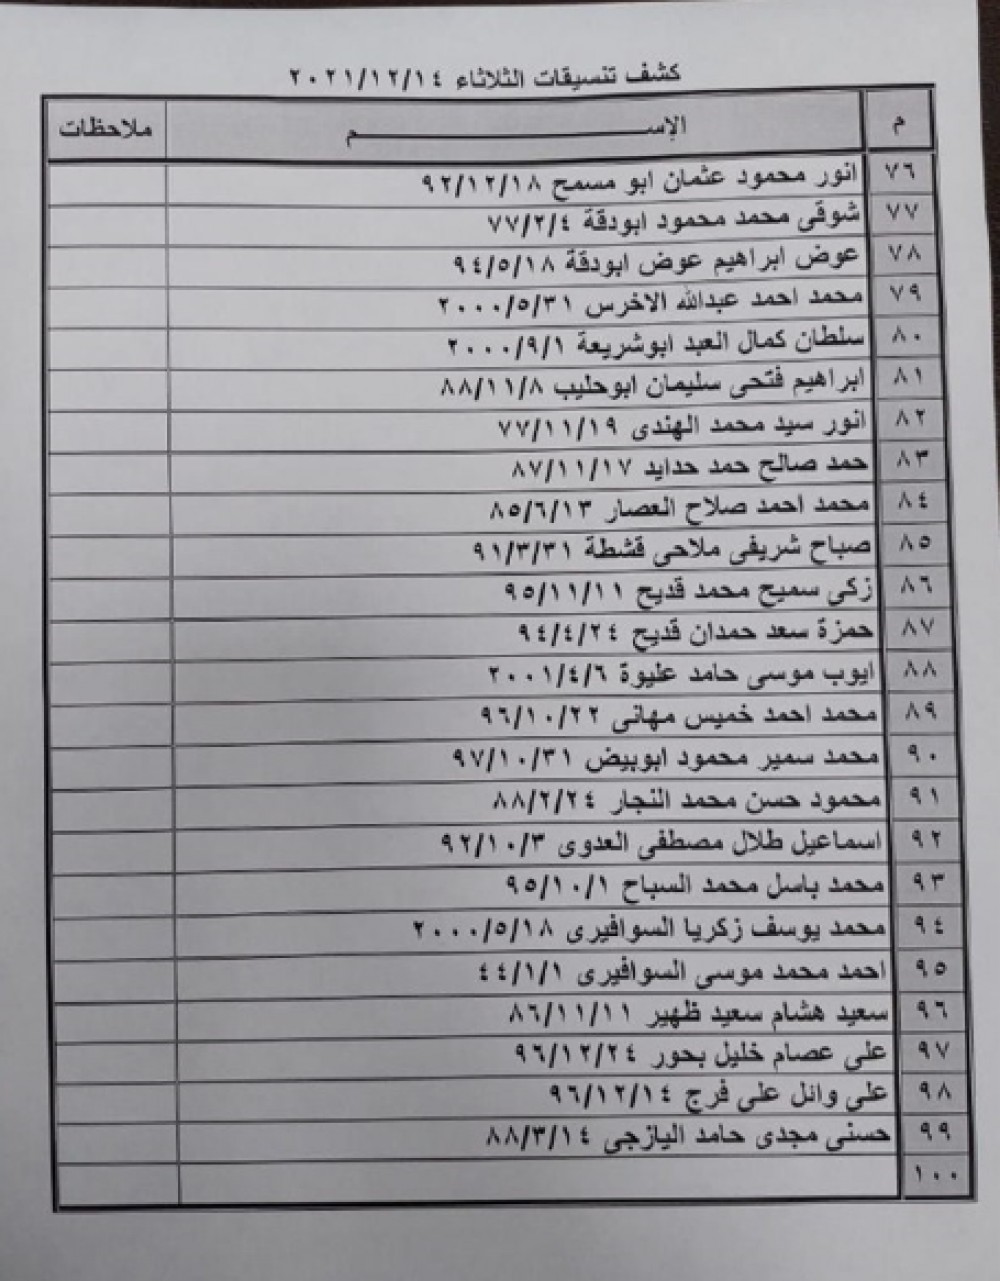 كشف تنسيقات الثلاثاء ٢٠٢١/١٢/١٤
م الإســـــــــــــــم ملاحظات
٧٦ انور محمود عثمان ابو مسمح ٩٢/١٢/١٨
٧٧ شوقى محمد محمود ابودقة ٧٧/٢/٤
٧٨ عوض ابراهيم عوض ابودقة ٩٤/٥/١٨
٧٩ محمد احمد عبدالله الاخرس ٢٠٠٠/٥/٣١
٨٠ سلطان كمال العبد ابوشريعة ٢٠٠٠/٩/١
٨١ ابراهيم فتحى سليمان ابوحليب ٨٨/١١/٨
٨٢ انور سيد محمد الهندى ٧٧/١١/١٩
٨٣ حمد صالح حمد حدايد ٨٧/١١/١٧
٨٤ محمد احمد صلاح العصار ٨٥/٦/١٣
٨٥ صباح شريفى ملاحى قشطة ٩١/٣/٣١
٨٦ زكى سميح محمد قديح ٩٥/١١/١١
٨٧ حمزة سعد حمدان قديح ٩٤/٤/٢٤
٨٨ ايوب موسى حامد عليوة ٢٠٠١/٤/٦
٨٩ محمد احمد خميس مهانى ٩٦/١٠/٢٢
٩٠ محمد سمير محمود ابوبيض ٩٧/١٠/٣١
٩١ محمود حسن محمد النجار ٨٨/٢/٢٤
٩٢ اسماعيل طلال مصطفى العدوى ٩٢/١٠/٣
٩٣ محمد باسل محمد السباح ٩٥/١٠/١
٩٤ محمد يوسف زكريا السوافيرى ٢٠٠٠/٥/١٨
٩٥ احمد محمد موسى السوافيرى ٤٤/١/١
٩٦ سعيد هشام سعيد ظهير ٨٦/١١/١١
٩٧ على عصام خليل بحور ٩٦/١٢/٢٤
٩٨ على وائل على فرج ٩٦/١٢/١٤
٩٩ حسنى مجدى حامد اليازجى ٨٨/٣/١٤
١٠٠